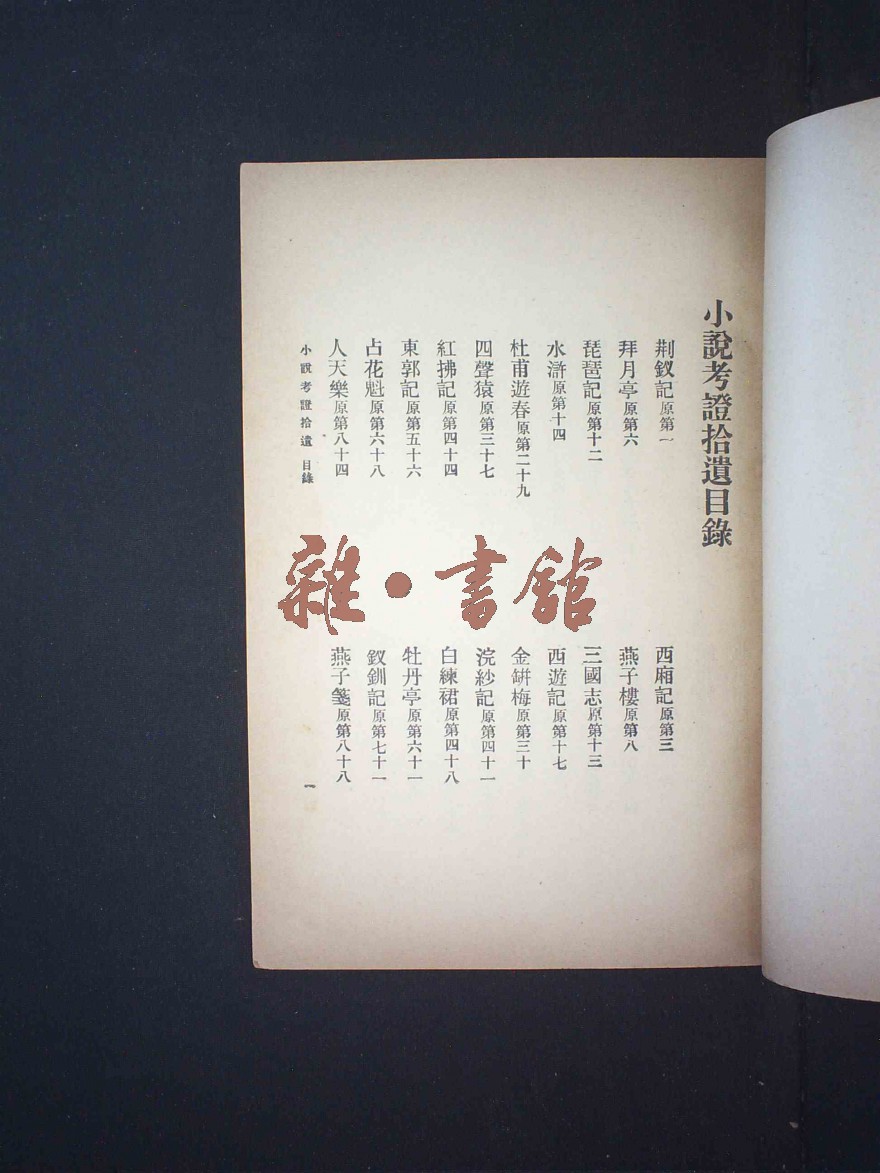 小說考證拾遺目錄
荆釵記原第一
西廂記原第三
拜月亭原第六
燕子樓原第八
琵琶記原第十二
三國志原第十三
水滸原第十四
西遊記原第十七
杜甫遊春原第二十九
金缾梅原第三十
四聲猿原第三十七
浣紗記原第四十一
紅拂記原第四十四
白練裙原第四十八
東郭記原第五十六
牡丹亭原第六十一
占花魁原第六十八
釵釧記原第七十一
人天樂原第八十四
燕子箋原第八十八
小說考證拾遺 目錄
一
雜·書館